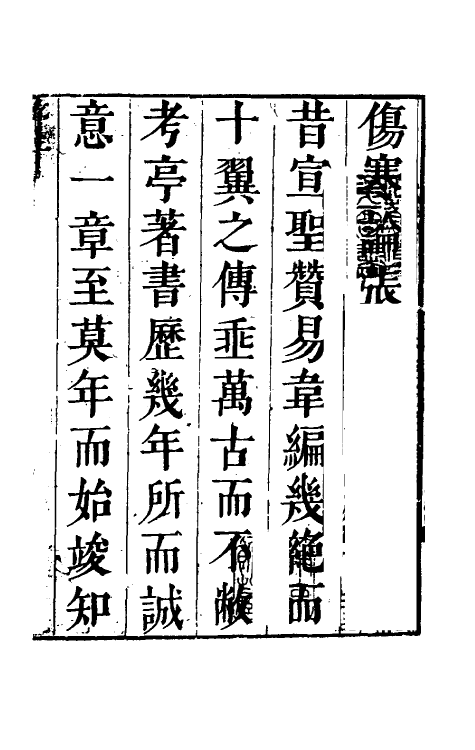 傷寒論張
昔宣聖贊易韋編幾絕而
十翼之傳垂萬古而不敝
考亭著書歷幾年所而誠
意一章至莫年而始竣知